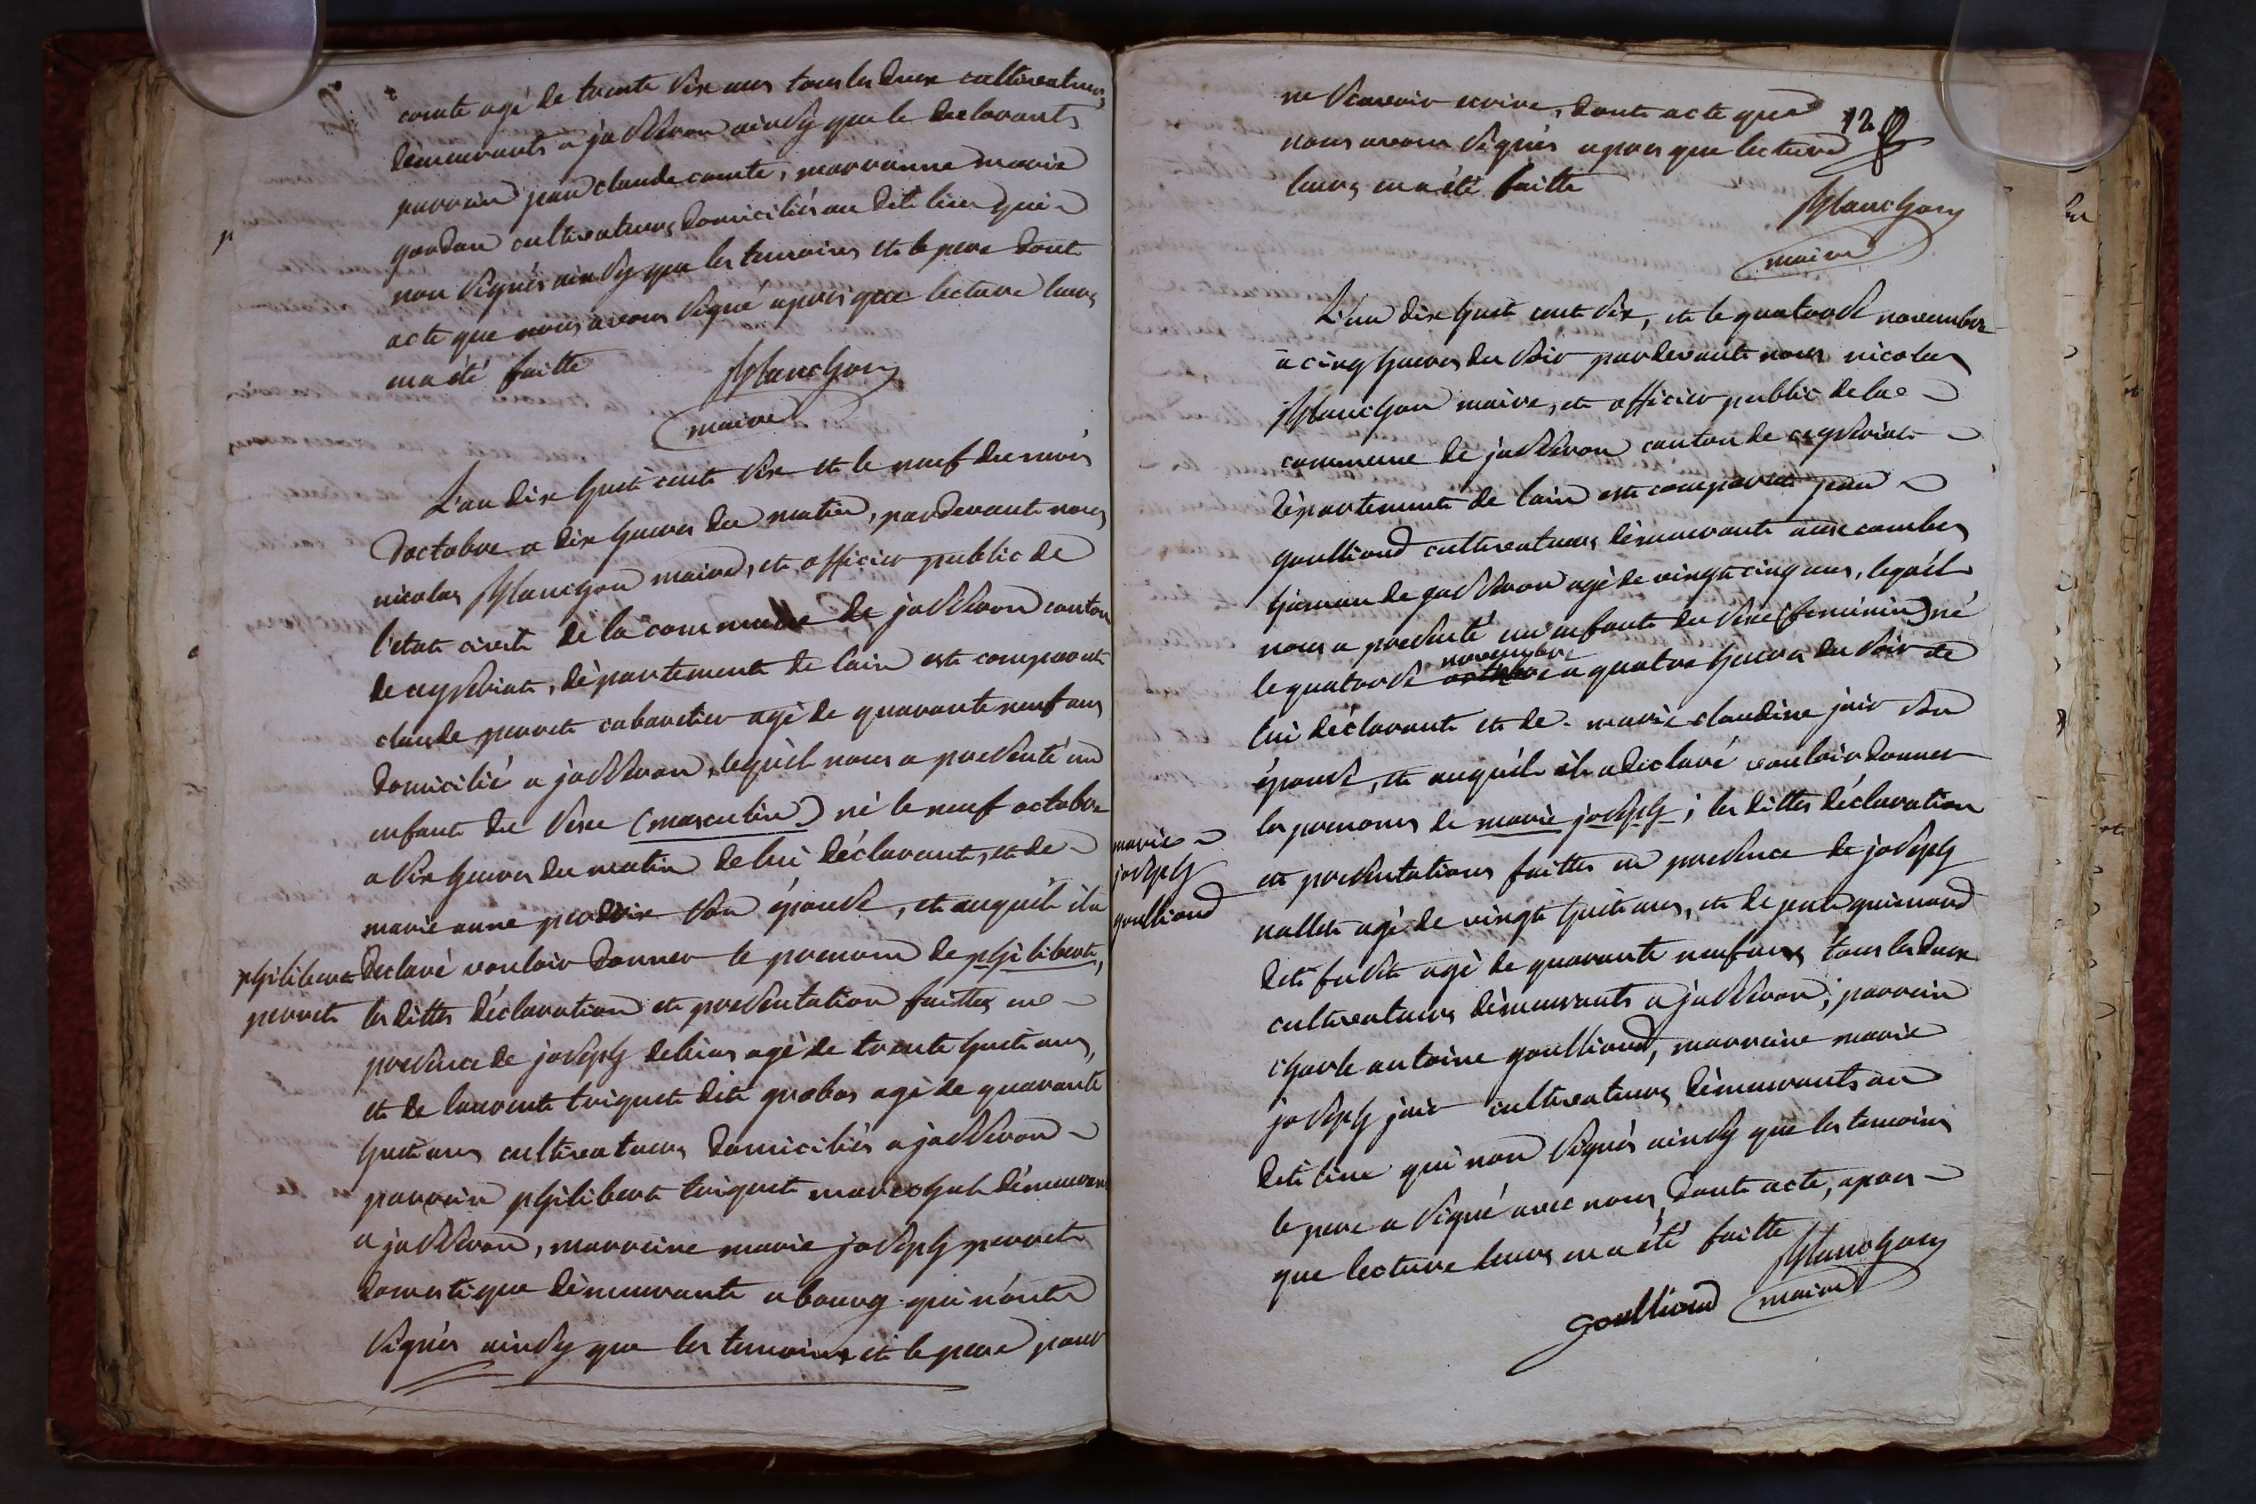 comte agé de trente six ans tous les deux cultivateurs,
demeurants a jasseron ainsy que le declarants
parrain jean claude comte, marrainne marie
gordan cultivateurs domiciliés au dit lieu qui
non signés ainsy que les temoins et le pere dont
acte que nous avons signé apres que lecture leurs
en a été faitte
Planchon
maire
L'an dix huit cent six et le neuf du mois
d'octobre a dix heures du matin, pardevant nous
nicolas Planchon maire, et officier public de
l'etat civil de la commune de jasseron canton
de ceyseriat, département de lain est comparut
claude perret cabaretier agé de quarante neuf ans
domicilié a jasseron, lequel nous a presenté un
enfant du sexe (masculin) né le neuf octobre
a six heures du matin de lui déclarant, et de
marie anne perdrix son épouse, et auquel il a
declaré vouloir donner le prenom de philibert,
philibert
perret
les dittes déclaration et presentation faittes en
presence de joseph debias agé de trente huit ans,
et de laurent triquet dit grobas agé de quarante
huit ans cultivateurs domiciliés a jasseron
parrain philibert triquet marechal demeurant
a jasseron, marreine marie joseph perret
domestique demeurante a bourg qui n'ont
signés ainsy que les temoins et le pere pour
ne scavoir ecrire, dont acte que
12
nous avons signés apres que lecture
leurs en a été faitte
Planchon
maire
L'an dix huit cent six, et le quatorse novembre
a cinq heures du soir pardevant nous nicolas
Planchon maire, et officier public de la
commune de jasseron canton de ceyseriat
département de lain est comparut jean
goulliond cultivateurs démeurant aux combes
hameau de jasseron agé de vingt cinq ans, lequel
nous a presenté un enfant du sexe (feminin) né
novembre
le quatorse octobre a quatre heures du soir de
lui déclarant et de marie claudine jair son
épouse, et auquel il a declaré vouloir donner
les prenoms de marie joseph; les dittes déclaration
marie
joseph
goulliond
et presentations faittes en presence de joseph
nallet agé de vingt huit ans, et de jean guienard
dit fusit agé de quarante neuf ans tous les deux
cultivateurs démeurants a jasseron; parrain
charle antoine goulliond, marreine marie
joseph jair cultivateurs démeurants au
dit lieu qui non signés ainsy que les temoins
le pere a signé avec nous dont acte, apres
que lecture leurs en a été faitte
Planchon
goulliond maire